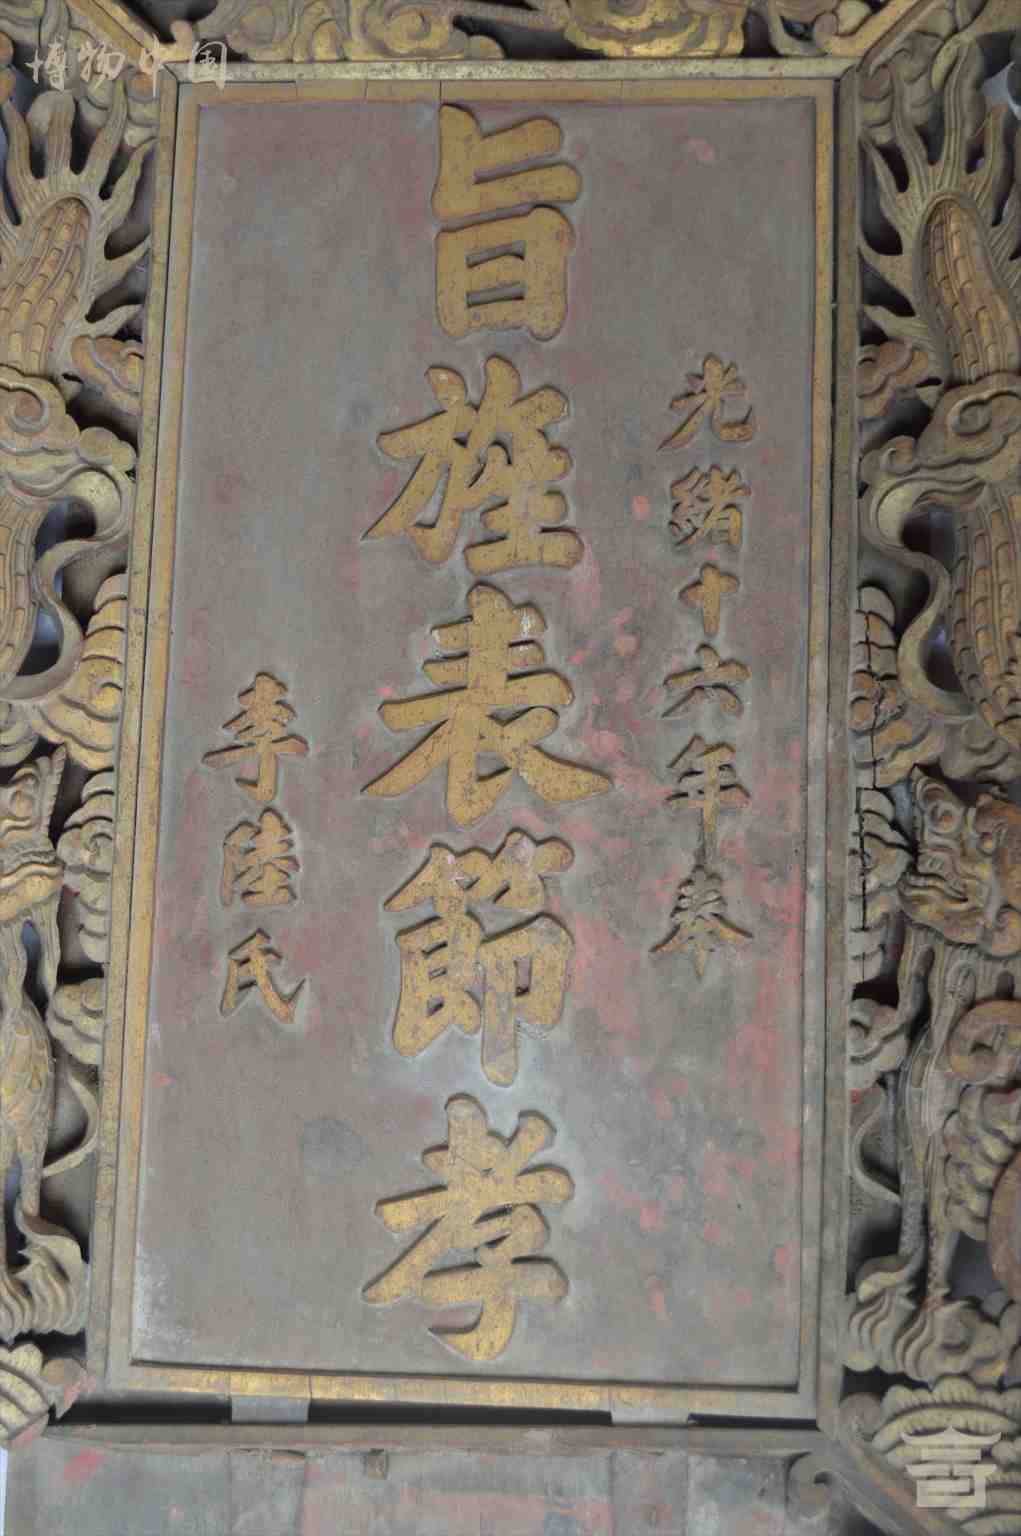 光緒十六年奉
旨旌表節孝
李陸氏
博物中国